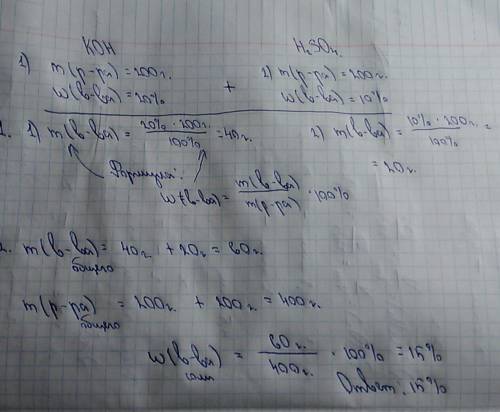 KOH H₂SO₄.
1) m(р-ра) = 200г. 2) m(р-ра) = 200г.
w(в-ва) = 20% + w(в-ва) = 10%
1. 1) m(в-ва) = 20% · 200г. / 100% = 40г. 2) m(в-ва) = 10% · 200г. / 100% =
= 20г.
Формула:
w(в-ва) = m(в-ва) / m(р-ра) · 100%
2. m(в-ва) общего = 40г + 20г = 60г.
m(р-ра) общего = 200г. + 200г. = 400г.
w(в-ва) соли = 60г. / 400г. · 100% = 15%
Ответ: 15%